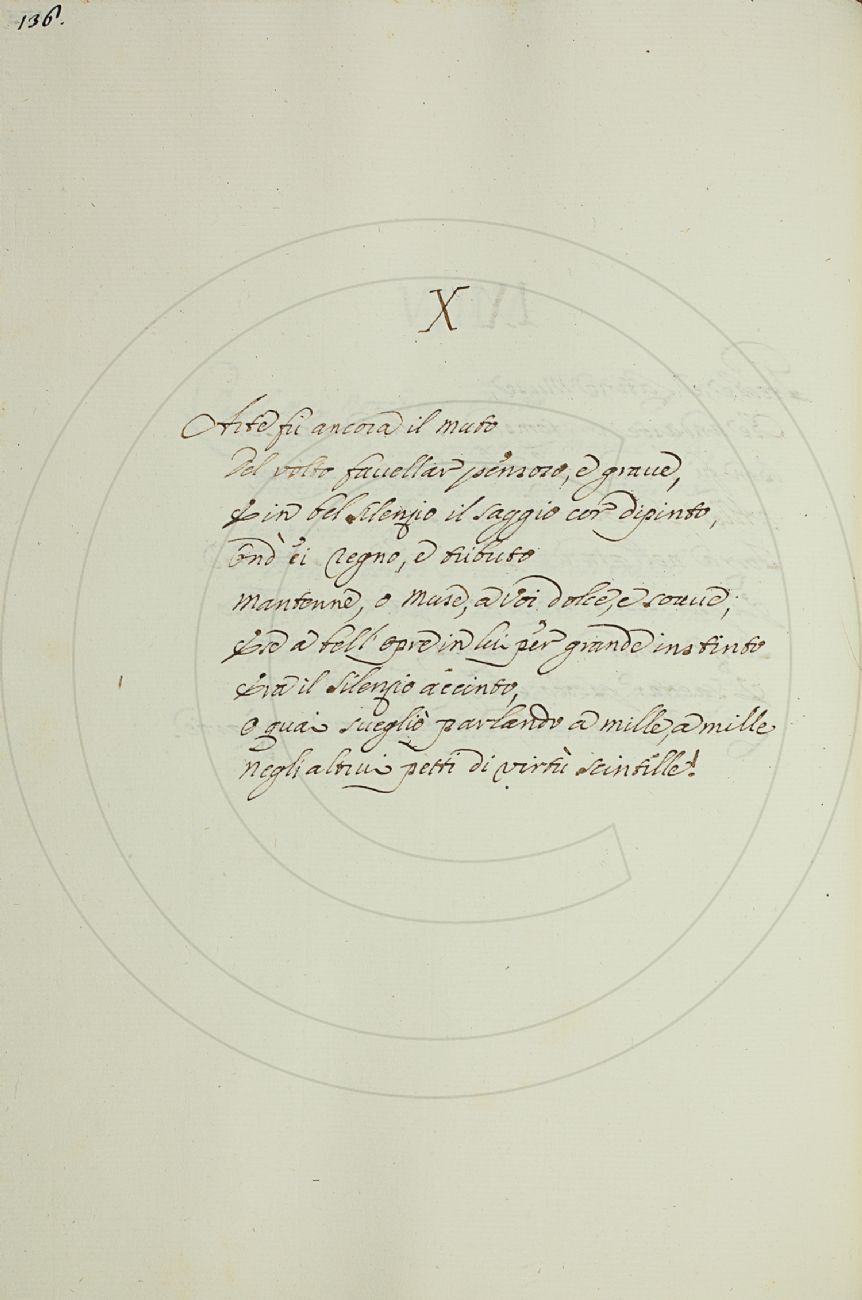 136.
X
Arte fù ancora il muto
Del volto fauellar pensoso, e graue,
E in bel silenzio il saggio cor dipinto,
ond' ei regno, e tributo
mantenne, o Muse, a voi dolce, e soaue;
E se a bell' opre in lui per grande instinto
Era il silenzio accinto,
o quai suegliò parlando a mille, a mille
negli altrui petti di virtù scintille!